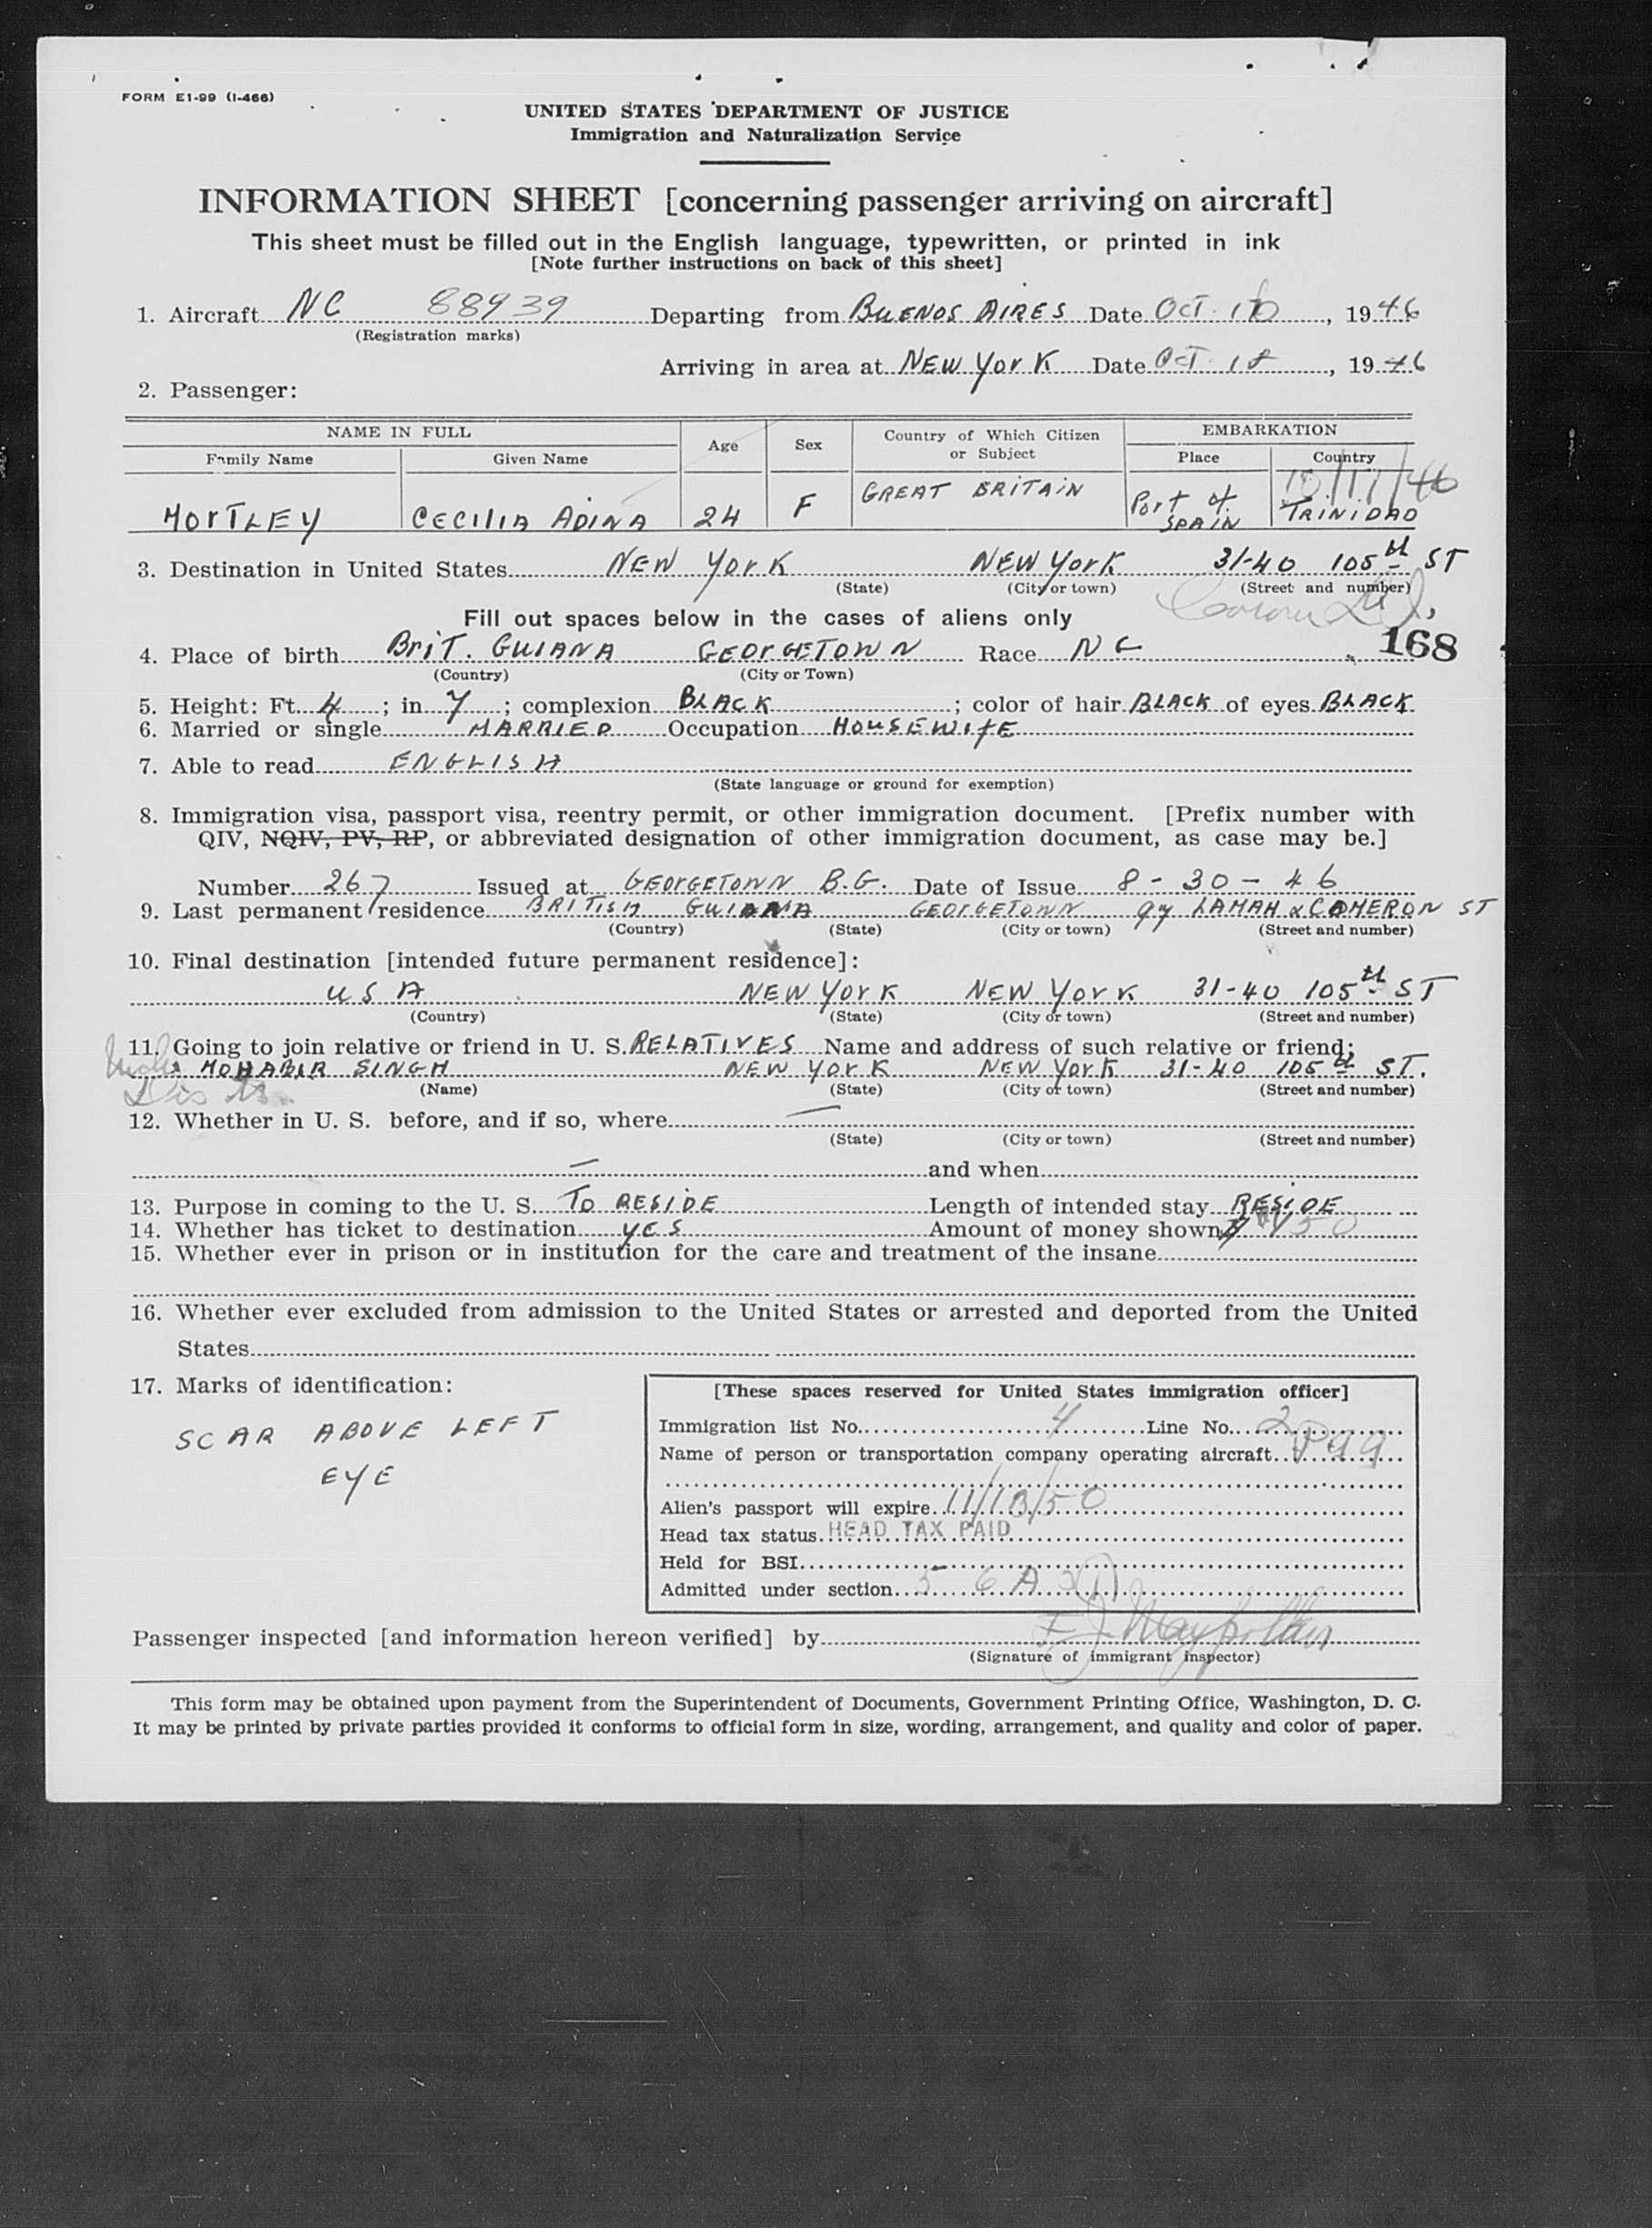 FORM E1-99 (I-466)
UNITED STATES DEPARTMENT OF JUSTICE
Immigration and Naturalization Service
INFORMATION SHEET [concerning passenger arriving on aircraft]
This sheet must be filled out in the English language, typewritten, or printed in ink
[Note further instructions on back of this sheet]
1. Aircraft NC 88939 Departing from BUENOS AIRES Date OCT , 1946
(Registration marks)
Arriving in area at NEW YORK Date OCT 18, 1946
2. Passenger:
NAME IN FULL Age Sex Country of Which Citizen or Subject EMBARKATION
Family Name Given Name Place Country
10/17/46
MORTLEY CECILIA ADINA 24 F GREAT BRITAIN Port of SPAIN TRINIDAD
3. Destination in United States NEW YORK NEW YORK 31-40 105th ST
(State) (City or town) (Street and number)
Fill out spaces below in the cases of aliens only
Corona L.I.
168
4. Place of birth BRIT. GUIANA GEORGETOWN Race
(Country) (City or Town)
5. Height: Ft. 4; in 7; complexion BLACK; color of hair BLACK of eyes BLACK
6. Married or single MARRIED Occupation HOUSEWIFE
7. Able to read ENGLISH
(State language or ground for exemption)
8. Immigration visa, passport visa, reentry permit, or other immigration document. [Prefix number with
QIV, NQIV, PV, RP, or abbreviated designation of other immigration document, as case may be.]
Number 267 Issued at GEORGETOWN B.G. Date of Issue 8-30-46
9. Last permanent residence BRITISH GUIANA GEORGETOWN LAMAH & CAMERON ST
(Country) (State) (City or town) (Street and number)
10. Final destination [intended future permanent residence]:
USA NEW YORK NEW YORK 31-40 105th ST
(Country) (State) (City or town) (Street and number)
11. Going to join relative or friend in U. S. RELATIVES Name and address of such relative or friend:
MOHABIR SINGH NEW YORK NEW YORK 31-40 105th ST.
(Name) (State) (City or town) (Street and number)
12. Whether in U. S. before, and if so, where —
(State) (City or town) (Street and number)
— and when
13. Purpose in coming to the U. S. TO RESIDE Length of intended stay RESIDE
14. Whether has ticket to destination YES Amount of money shown
15. Whether ever in prison or in institution for the care and treatment of the insane
16. Whether ever excluded from admission to the United States or arrested and deported from the United
States
17. Marks of identification:
SCAR ABOVE LEFT
EYE
[These spaces reserved for United States immigration officer]
Immigration list No. 4 Line No. 2
Name of person or transportation company operating aircraft
Alien's passport will expire 11/13/50
Head tax status HEAD TAX PAID
Held for BSI
Admitted under section 5 6 A 3(1)
Passenger inspected [and information hereon verified] by
(Signature of immigrant inspector)
This form may be obtained upon payment from the Superintendent of Documents, Government Printing Office, Washington, D. C.
It may be printed by private parties provided it conforms to official form in size, wording, arrangement, and quality and color of paper.